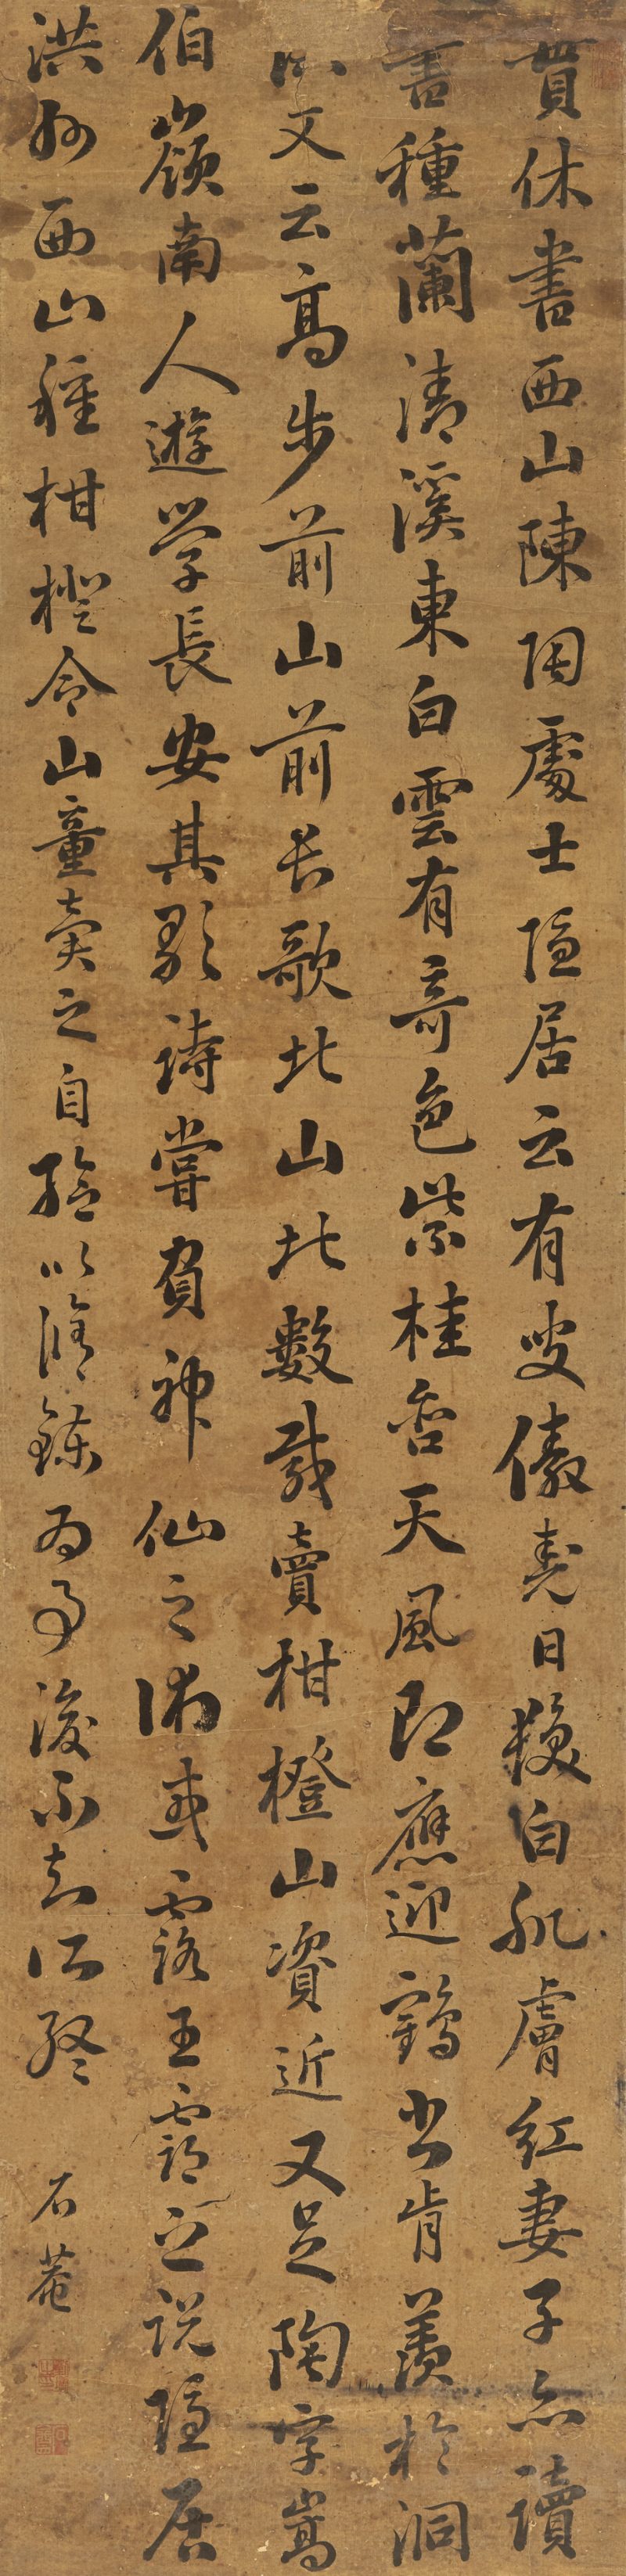 貫休書西山陳陶處士隱居云有叟傲堯日髮白肌膚紅妻子亦讀
書種蘭清溪東白雲有奇色紫桂含天風即應迎鶴書肯羨於洞
又云高步前山前長歌北山北數載賣柑橙山資近又足陶字嵩
伯嶺南人遊學長安其歌詩嘗負神仙之術或露王霸之說隱居
洪州西山種柑橙令山童賣之自給以脩鍊為事後不知所終
石菴